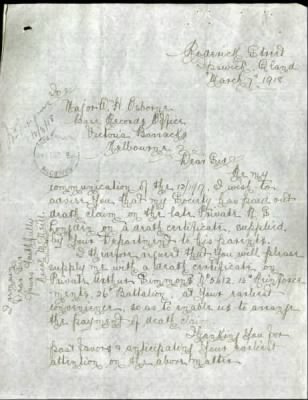 Roderick Street
Ipswich, Qland
March 7th 1918
To
Major H Osborne
Base Records Office
Victoria Barracks
Melbourne
Dear Sir
Re my
communication of the I wish to
advise you that my Society has paid out
death claim on the late Private
on a death certificate, supplied
by Your Department to his parents.
I therefore request that You will please
supply me with a death certificate, on
Private Arthur Simmonds No 5412. 15 Reinforce
ments, 26th Battalion at Your earliest
convenience, so as to enable us to arrange
the payment of death claim
Thanking You for
past favors & anticipating Your earliest
attention on the above matter
I remain
Dear Sir
Yours faithfully